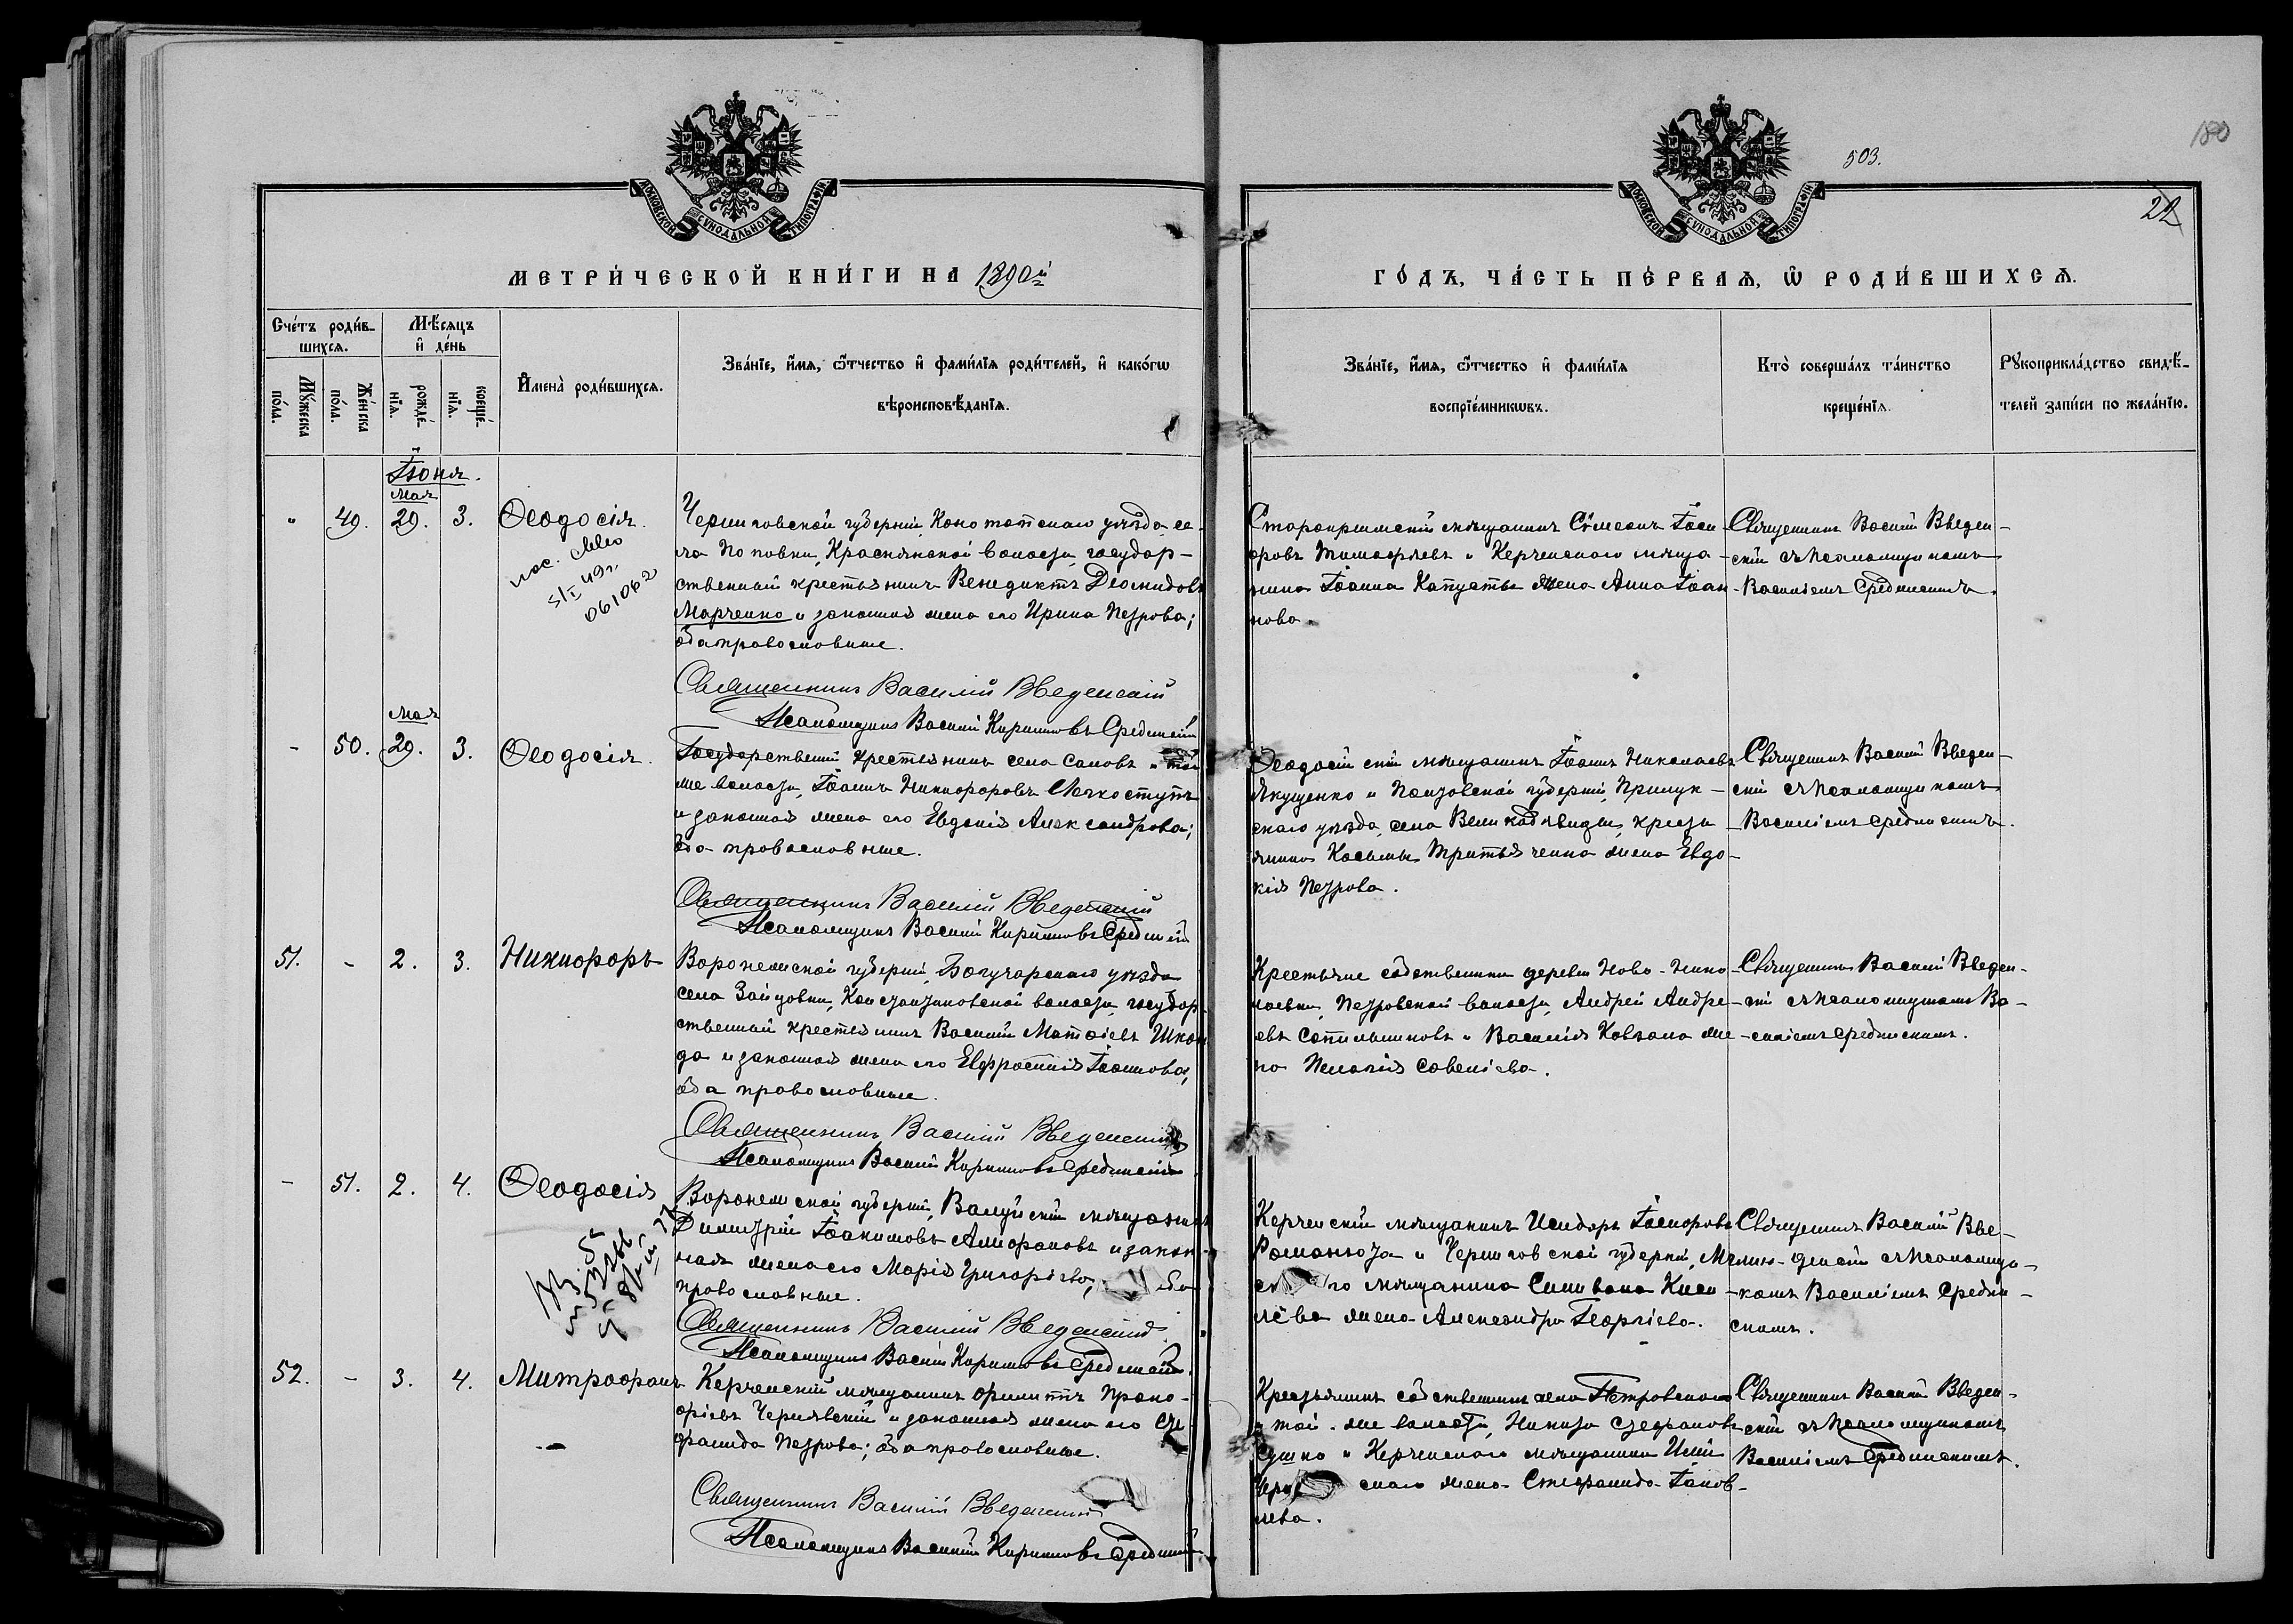 503.
180
22
МОСКОВСКОЙ СѴНОДАЛЬНОЙ ТИПОГРАФІИ
МОСКОВСКОЙ СѴНОДАЛЬНОЙ ТИПОГРАФІИ
МЕТРИ́ЧЕСКОЙ КНИ́ГИ НА 1890й
ГО́ДЪ, ЧА́СТЬ ПЕ́РВАѦ, Ѡ РОДИ́ВШИХСѦ.
Сче́тъ роди́в-
шихсѧ.
Мѣ́сѧцъ
и҆ де́нь
Мꙋ́жеска
по́ла.
Же́нска
по́ла.
рожде́-
нїѧ.
креще́-
нїѧ.
И҆мена̀ роди́вшихсѧ.
Зва́нїе, и҆́мѧ, ѻ҆́тчество и҆ фами́лїѧ роди́телей, и҆ како́гѡ
вѣроисповѣ́данїѧ.
Зва́нїе, и҆́мѧ, ѻ҆́тчество и҆ фами́лїѧ
воспрїе́мникѡвъ.
Кто̀ соверша́лъ та́инство
креще́нїѧ.
Рꙋкоприкла́дство свидѣ́-
телей за́писи по жела́нїю.
Іюня.
мая
" 49. 29. 3. Ѳеодосія.
Черниговской губерніи, Конотопскаго уѣзда, се-
ла Поповки, Краснянской волости, государ-
ственный крестьянинъ Венедиктъ Діомидовъ
Марченко и законная жена его Ирина Петрова;
оба православные.
Священникъ Василій Введенскій
Псаломщикъ Василій Кирилловъ Срединскій
Старокрымскій мѣщанинъ Сѵмеонъ
Тимофѣевъ и Керченскаго мѣща-
нина Іоанна Капусты жена Анна Іоан-
нова.
Священникъ Василій Введен-
скій съ псаломщикомъ
Василіемъ Срединскимъ.
061062
мая
- 50. 29. 3. Ѳеодосія.
Государственный крестьянинъ села Саловъ и той
же волости, Іоаннъ Никифоровъ Легкоступъ
и законная жена его Евдокія Александрова;
оба православные.
Священникъ Василій Введенскій
Псаломщикъ Василій Кирилловъ Срединскій
Ѳеодосійскій мѣщанинъ Іоаннъ Николаевъ
Якущенко и Полтавской губерніи, Прилук-
скаго уѣзда, села кресть-
янина Косьмы жена Евдо-
кія Петрова.
Священникъ Василій Введен-
скій съ псаломщикомъ
Василіемъ Срединскимъ.
51. - 2. 3. Никифоръ
Воронежской губерніи, Богучарскаго уѣзда
села Зайцовки, Константиновской волости, государ-
ственный крестьянинъ Василій Матѳіевъ Шкон-
да и законная жена его Евфросинія Іоаннова,
оба православные.
Священникъ Василій Введенскій
Псаломщикъ Василій Кирилловъ Срединскій
Крестьяне собственники деревни Ново-Нико-
лаевки, Петровской волости, Андрей Андре-
евъ и Василія Ковзала же-
на Пелагія Савеліева.
Священникъ Василій Введен-
скій съ псаломщикомъ Ва-
силіемъ Срединскимъ.
- 51. 2. 4. Ѳеодосія
Воронежской губерніи, Валуйскій мѣщанинъ
Димитрій Іоакимовъ и закон-
ная жена его Марія Григоріева, оба
православные.
Священникъ Василій Введенскій
Псаломщикъ Василій Кирилловъ Срединскій
Керченскій мѣщанинъ Исидоръ
Романюта и Черниговской губерніи, Мглин-
мѣщанина Силивана Кисе-
лёва жена Александра Георгіева.
Священникъ Василій Вве-
денскій съ псаломщи-
комъ Василіемъ Средин-
скимъ.
52. - 3. 4. Митрофанъ
Керченскій мѣщанинъ Филиппъ Проко-
фіевъ Чернявскій и законная жена его Сте-
фанида Петрова; оба православные.
Священникъ Василій Введенскій
Псаломщикъ Василій Кирилловъ Срединскій
Крестьянинъ собственникъ села Петровскаго
и той-же волости, Никита Стефановъ
Сушко и Керченскаго мѣщанина
скаго жена Стефанида Іаков-
лева.
Священникъ Василій Введен-
скій съ псаломщикомъ
Василіемъ Срединскимъ.